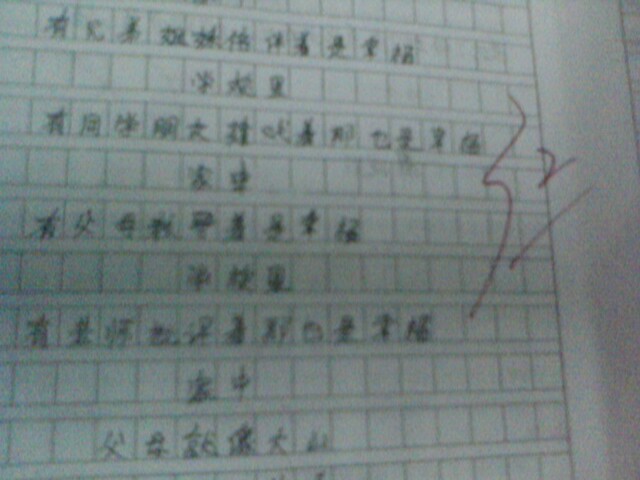 有兄弟姐妹陪伴着是幸福
学校里
有同学朋友拥着那也是幸福
家中
有父母教导着是幸福
学校里
有老师批评着那也是幸福
家中
父母就像大山
2